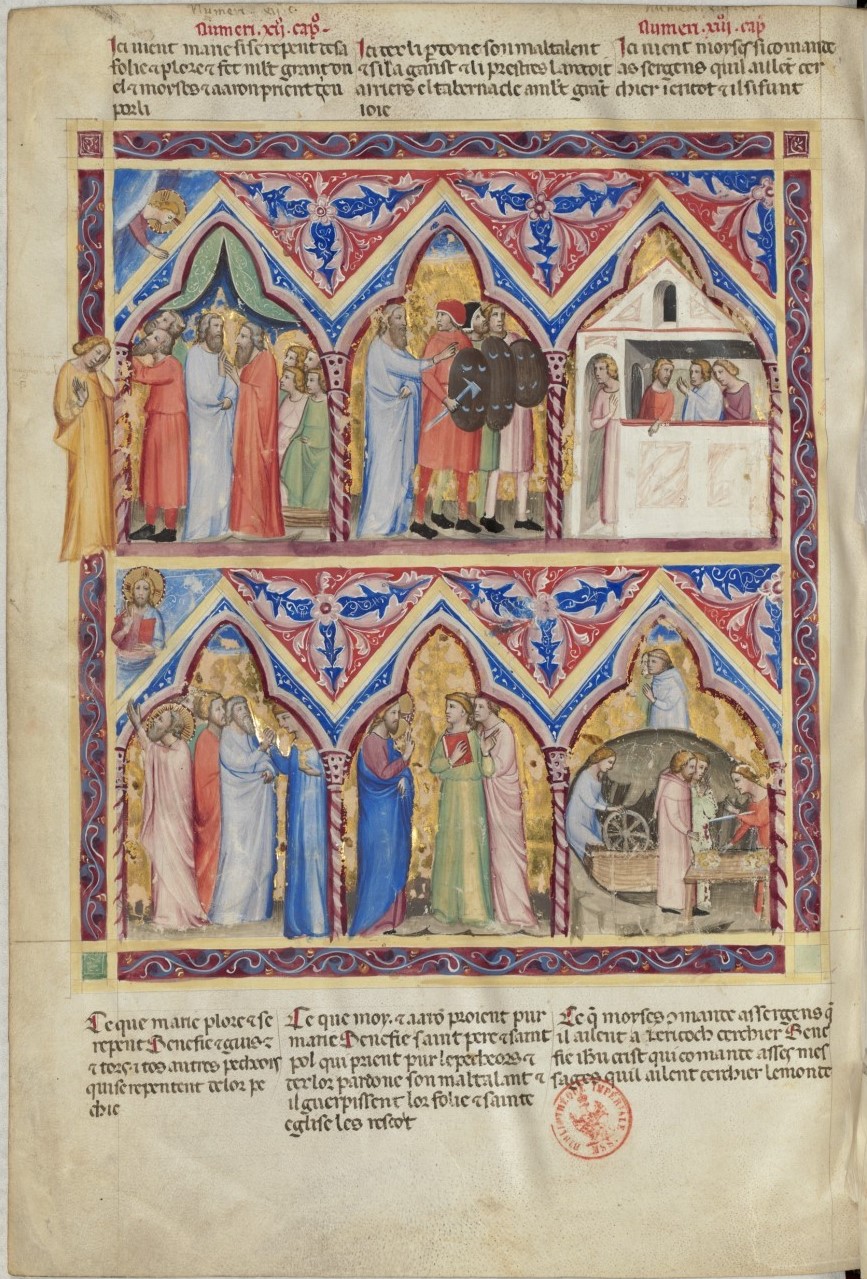 Numeri .xij. capo.
Ici uient marie si se repent de sa
folie & plore & fet mlt grant dou
el & moyses & aaron prient deu
por li
Ici dex li perdone son maltalent
& si la garist & li prestres la recoit
arriers el tabernacle a mlt grant
ioie
Numeri .xiij. cap
Ici uient moyses si comande
as sergens quil aillent cer
chier iericot & il si funt
Ce que marie plore & se
repent Senefie & guis &
& tos autres pecheors
qui se repentent de lor pe
chie
Ce que moy. & aaron proient pur
marie Senefie saint pere & saint
pol qui prient pur le pecheors &
dex lor pardone son maltalant &
il guerpissent lor folie & sainte
eglise les recoit
Ce q moyses comande as sergens q
il ailent a iericoch cerchier Sene
fie ihu crist qui comande a ses mes
sages quil ailent cerchier le monde
BIBLIOTHÈQUE IMPÉRIALE MSS